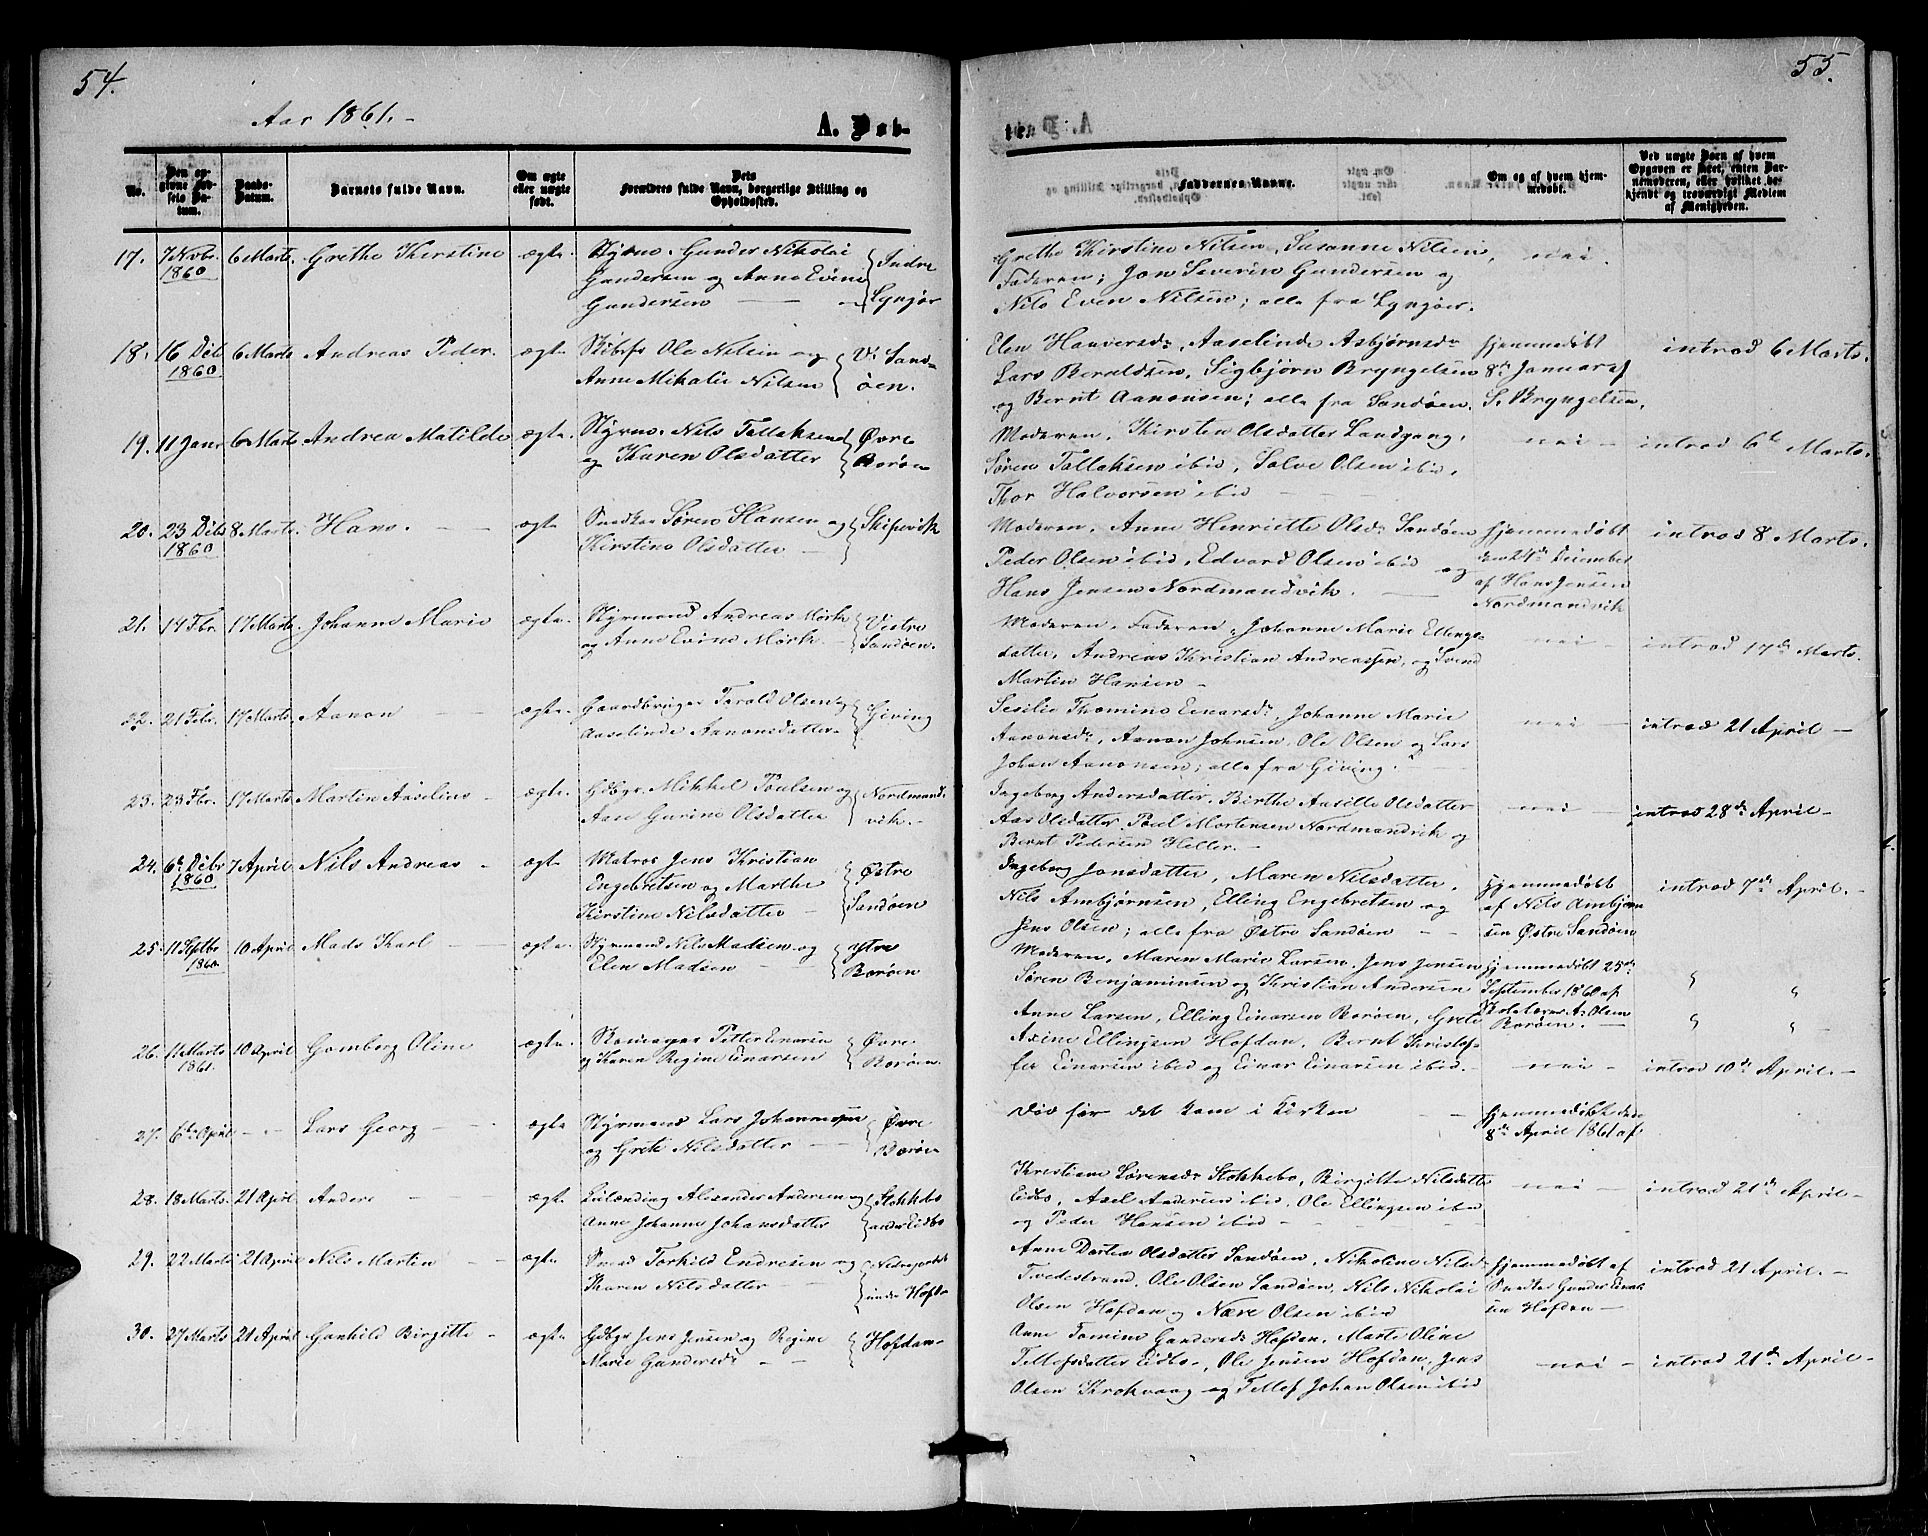 54.
Aar 1861.
A. Døb-
No.
Den opgivne Fødsels Datum.
Daabs-Datum.
Barnets fulde Navn.
Om ægte eller uægte født.
Dets Forældres fulde Navn, borgerlige Stilling og Opholdssted.
17. 7 Novbr 1860 6 Marts. Grethe Kirstine ægte. Styrm. Gunder Nikolai Indre
Gundersen og Anne Evine
Gundersen Lyngør
18. 16 Decb 1860 6 Marts Andreas Peder. ægte Ole Nilsen og V. Sand-
Anne Mikalie Nilsen øen.
19. 11 Janr 6 Marts Andrea Matilde ægte. Styrm. Nils Tallaksen Øvre
og Karen Olsdatter Borøen
20. 23 Decb 1860 8 Marts. Hans. ægte Snedker Søren Hansen og Skipsvik
Kirstine Olsdatter
21. 14 Fbr. 17 Marts. Johanne Marie ægte. Styrmand Andreas Mørk Vestre
og Anne Evine Mørk Sandøen.
22. 21 Febr. 17 Marts. Aanon ægte. Gaardbruger Tarald Olsen og Giving
Aaselinde Aanonsdatter
23. 23 Fbr. 17 Marts Martin Aaselius ægte. Gdbgr. Mikkel Poulsen og Nordmand-
Aase Gurine Olsdatter vik.
24. 6te Decb 1860 7 April Nils Andreas ægte Matros Jens Kristian Østre
Engebretsen og Marthe
Kirstine Nilsdatter Sandøen
25. 11 Septbr 1860. 10 April Mads Karl ægte. Styrmand Nils Madsen og ytre
Elen Madsen Borøen
26. 11 Marts 1861. 10 April Gomborg Oline ægte. Petter Einarsen Øvre
og Karen Regine Einarsen Borøen
27. 6te April Lars Georg ægte Styrmand Lars Johannessen Øvre
og Grete Nilsdatter Borøen
28. 18 Marts. 21 April Anders ægte Alexander Andersen og Stokkebo
Anne Johanne Johansdatter under Eidbo
29. 22 Marts 21 April Nils Martin ægte. Smed Torkild Endresen og
Karen Nilsdatter under Hofdan
30. 27 Marts 21 April Gunhild Birgitte ægte. Gdbgr Jens Jensen og Regine Hofdan
Marie Gundersdr
55.
Faddernes Navne.
Om og af hvem hjemmedøbt.
Ved uægte Børn af hvem Opgaven er skeet, enten Barnemoderen, eller hvilket bekjendt og troværdigt Medlem af Menigheden.
Grethe Kirstine Nilsen, Susanne Nilsen, nei.
Faderen, Jon Severin Gundersen og
Nils Even Nilsen; alle fra Lyngøer.
Elen Haaversdr, Aaselinde Asbjørnsdr hjemmedøbt introd 6 Marts.
Lars Beraldsen, Sigbjørn Bryngelsen 8de Januar af
og Bernt Aanonsen; alle fra Sandøen. S. Bryngelsen.
Moderen, Kirsten Olsdatter Landgang, nei introd 6te Marts.
Søren Tallaksen ibid, Salve Olsen ibid,
Thor Halvorsen ibid
Moderen, Anne Henriette Olsdr Sandøen hjemmedøbt introd 8 Marts.
Peder Olsen ibid, Edvard Olsen ibid og den 24de December
Hans Jensen Nordmandvik. af Hans Jensen
Nordmandvik
Moderen, Faderen, Johanne Marie Ellings- nei introd 17de Marts.
datter, Andreas Kristian Andreassen, og Svend
Martin Hansen
Sesilie Thomine Einarsdr, Johanne Marie nei introd 21 April
Aanonsdr, Aanon Johnsen, Ole Olsen og Lars
Johan Aanonsen; alle fra Giving.
Ingeborg Andersdatter, Birthe Aasille Olsdatter nei introd 28de April
Aas Olsdatter, Poul Mortensen Nordmandvik og
Bernt Pedersen Heller.
Ingeborg Jonsdatter, Maren Nilsdatter, hjemmedøbt introd 7de April.
Nils Ambjørnsen, Elling Engebretsen og af Nils Ambjørn
Jens Olsen; alle fra Østre Sandøen sen Østre Sandøen
Moderen, Maren Marie Larsen, Jens Jensen hjemmedøbt 25de
Søren Benjaminsen og Kristian Andersen September 1860 af " "
Anne Larsen, Elling Einarsen Borøen, Grete Skolelærer A. Olsen
Axine Ellingsen Hofdan, Bernt Kristof- Borøen. " "
fer Einarsen ibid og Einar Einarsen ibid. nei introd 10de April.
Død før det kom i Kirken hjemmedøbt den
8de April 1861 af
Kristiane Sørensdr Stokkebo, Birgitte Nilsdatt nei introd 21de April
Eidbo, Axel Andersen ibid, Ole Ellingsen ibid
og Peder Hansen ibid
Anne Dortea Olsdatter Sandøen, Nikoline Nilsdr hjemmedøbt af introd 21 April.
Tvedestrand, Ole Olsen Sandøen, Nils Nikolai Gunder Einar
Olsen Hofdan og Nære Olsen ibid sen Hofdan
Anne Tomine Gundersdr Hofdan, Marte Oline
Tellefsdatter Eidbo, Ole Jensen Hofdan, Jens nei introd 21de April
Olsen Krokvaag og Tellef Johan Olsen ibid